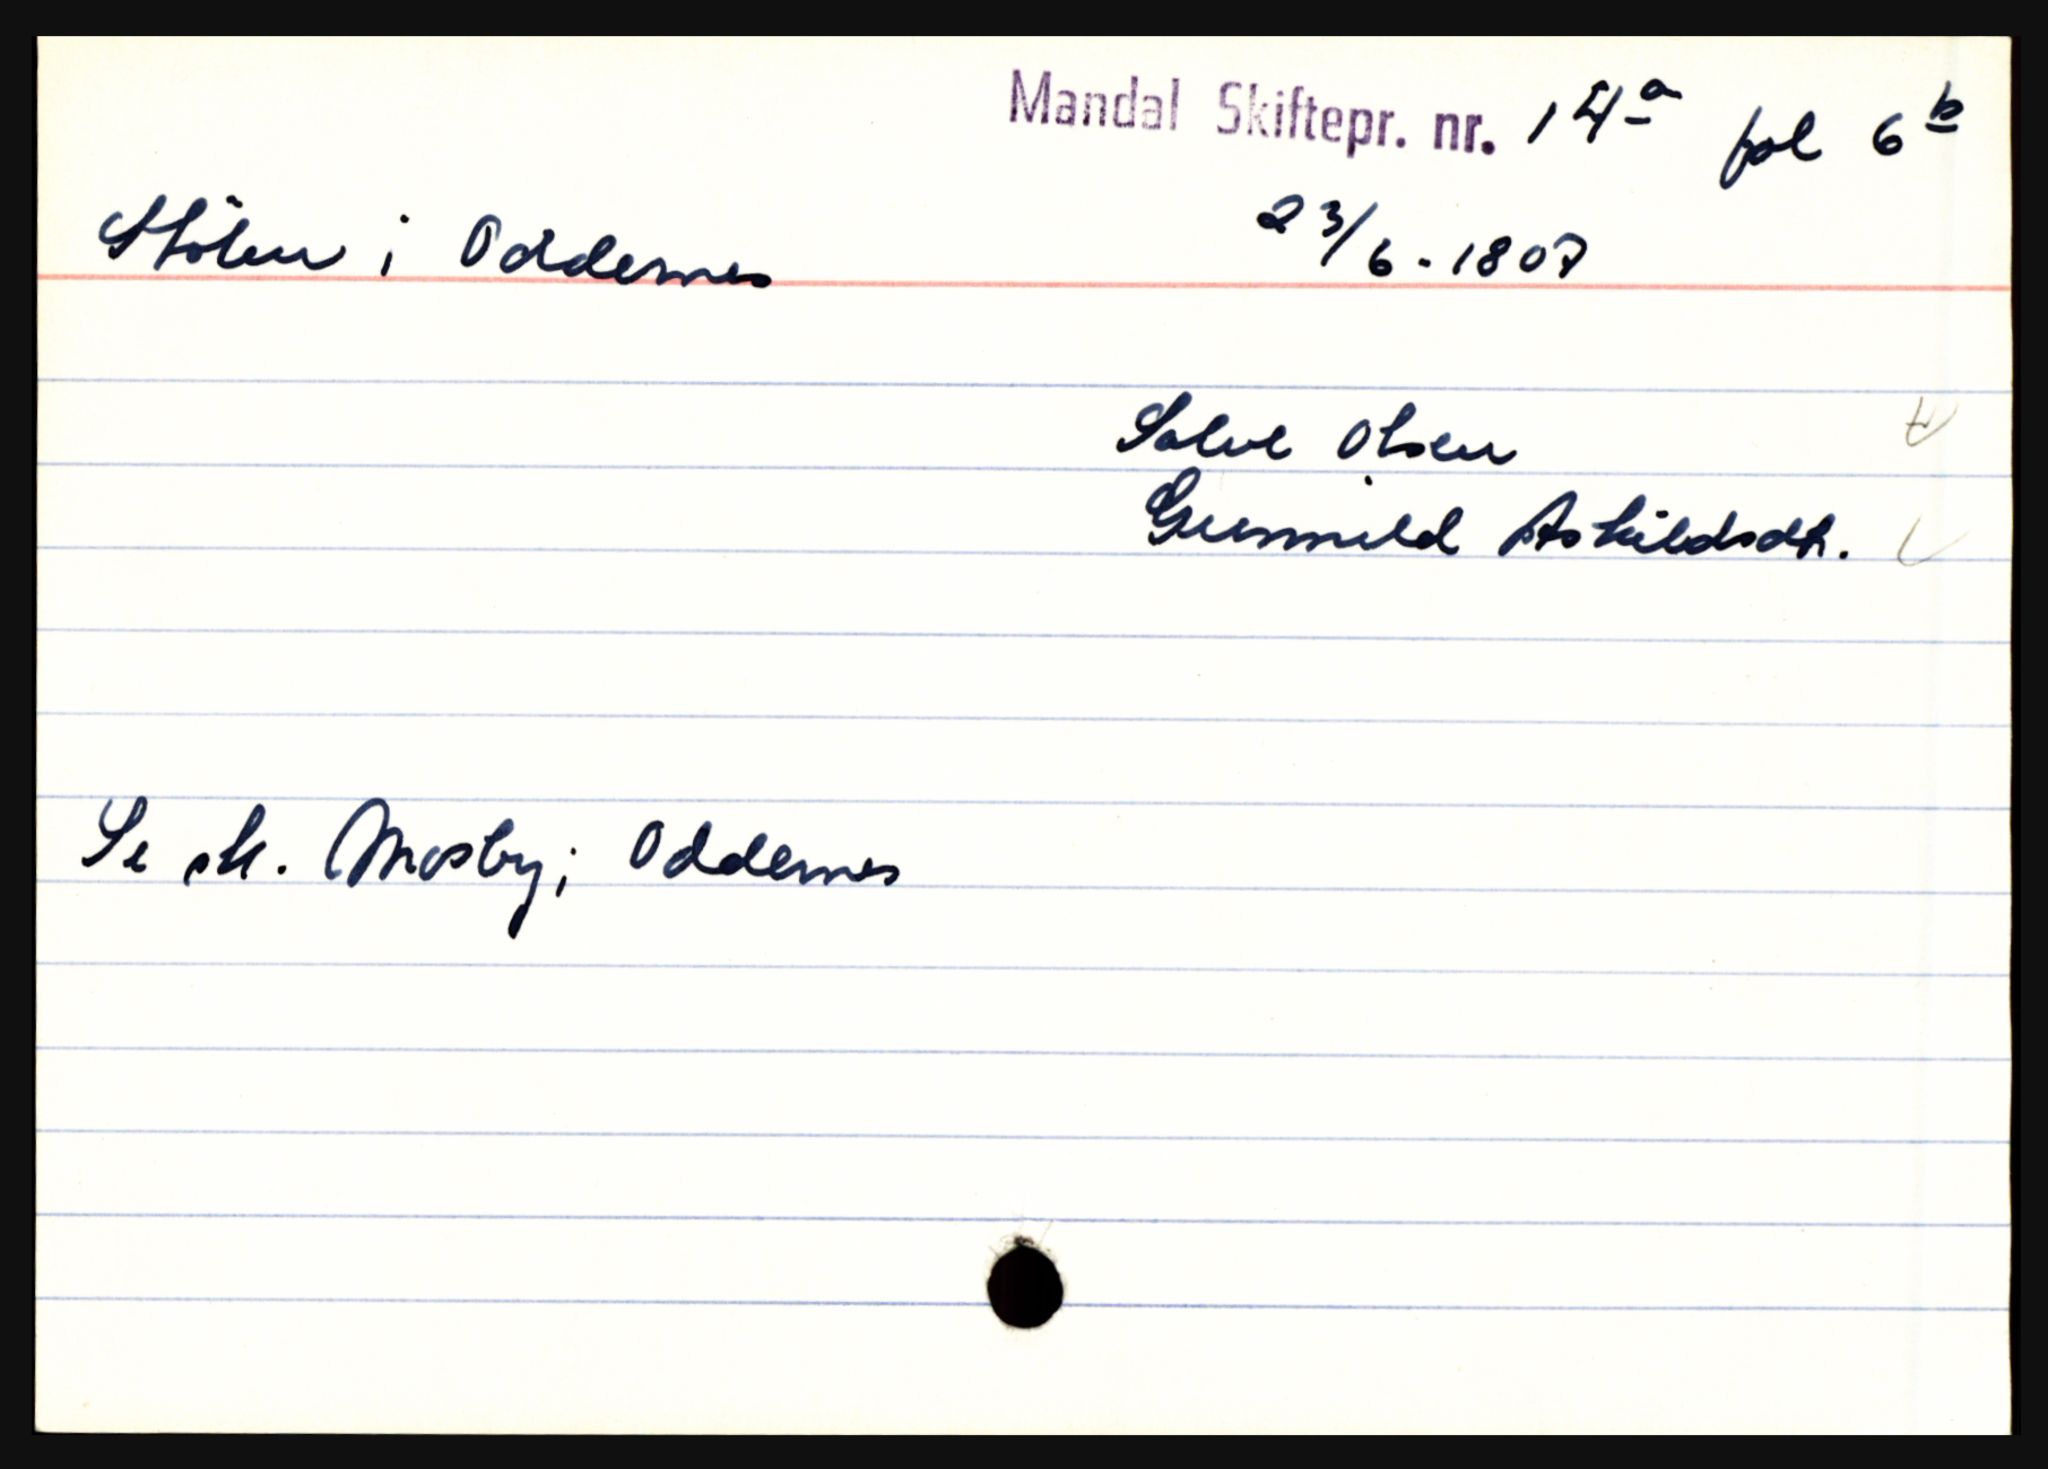 Mandal Skiftepr. nr. 14a fol 6b
Stölen i Oddernes 23/6 - 1807
Salve Olsen
Gunnild Askildsdtr.
Se sk. Mosby i Oddernes